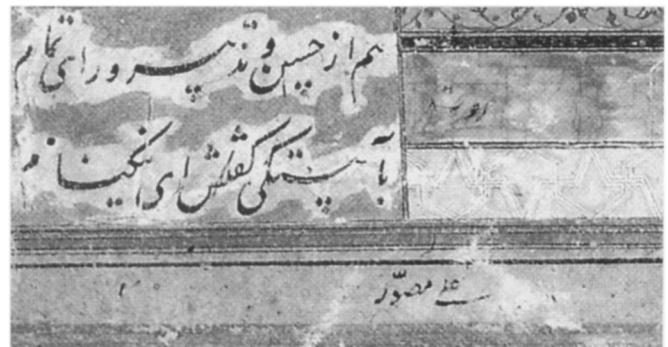 هم از حسن و تدبیر و رای تمام
بآهستگی گفتش ای نیکنام
علی مصوّر